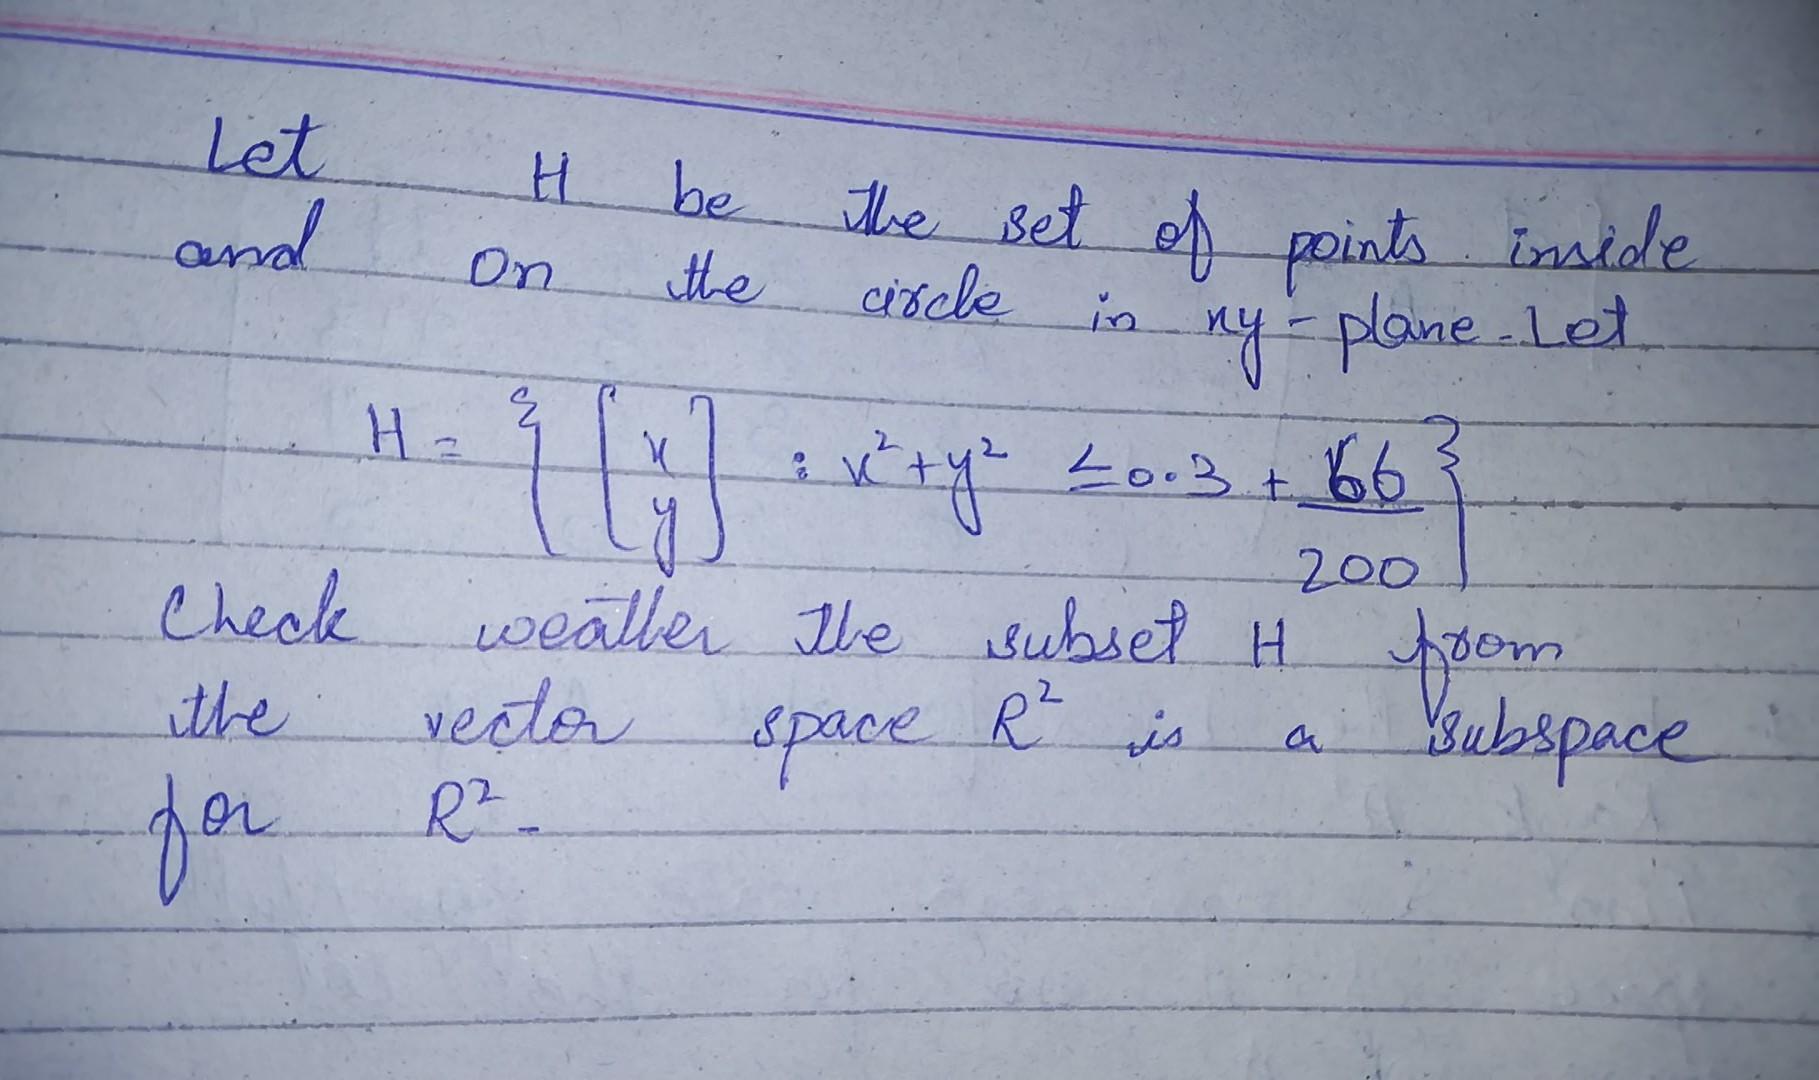 Let H be the set of points inside
and on the circle in xy-plane. Let
H = { [x y] : x² + y² ≤ 0.3 + 66/200 }
Check weather the subset H from
the vector space R² is a subspace
for R².